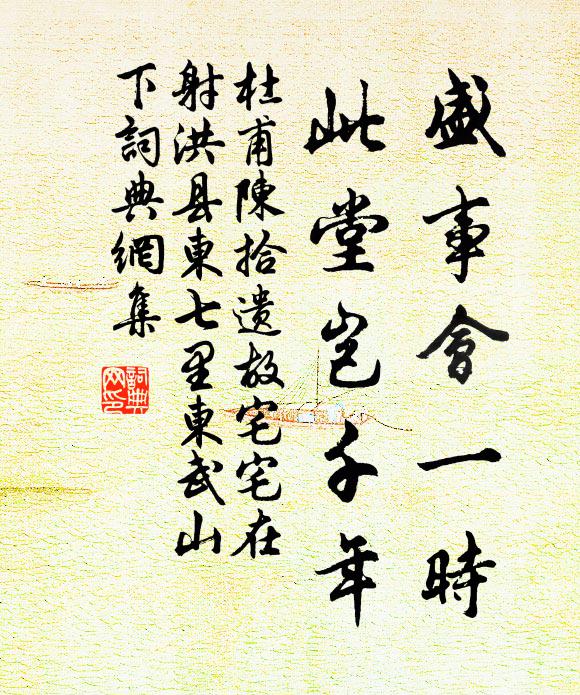 盛事會一時
此堂豈千年
杜甫陳拾遺故宅宅在
射洪县東七里東武山
下詞典網集
詞典網印